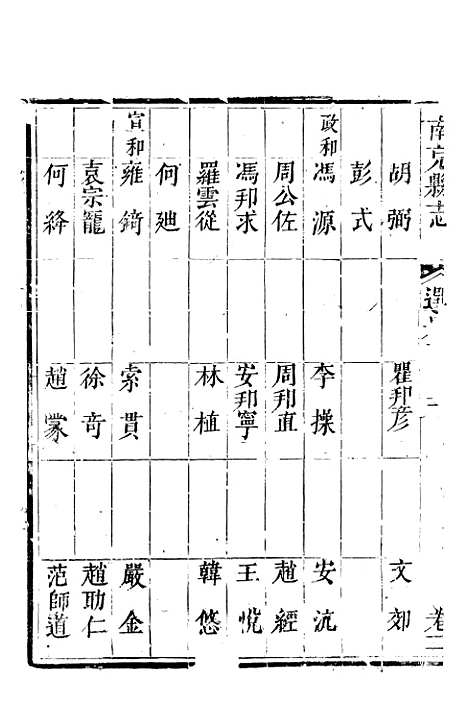 南充縣志 選舉 二 卷二
胡弼 瞿邦彦 文郊
彭式
政和 馮源 李操 安沆
周公佐 周邦直 趙經
馮邦求 安邦寧 王悅
羅雲從 林植 韓悠
何廸
宣和 雍錡 索貫 嚴金
袁宗寵 徐奇 趙助仁
何絳 趙蒙 范師道